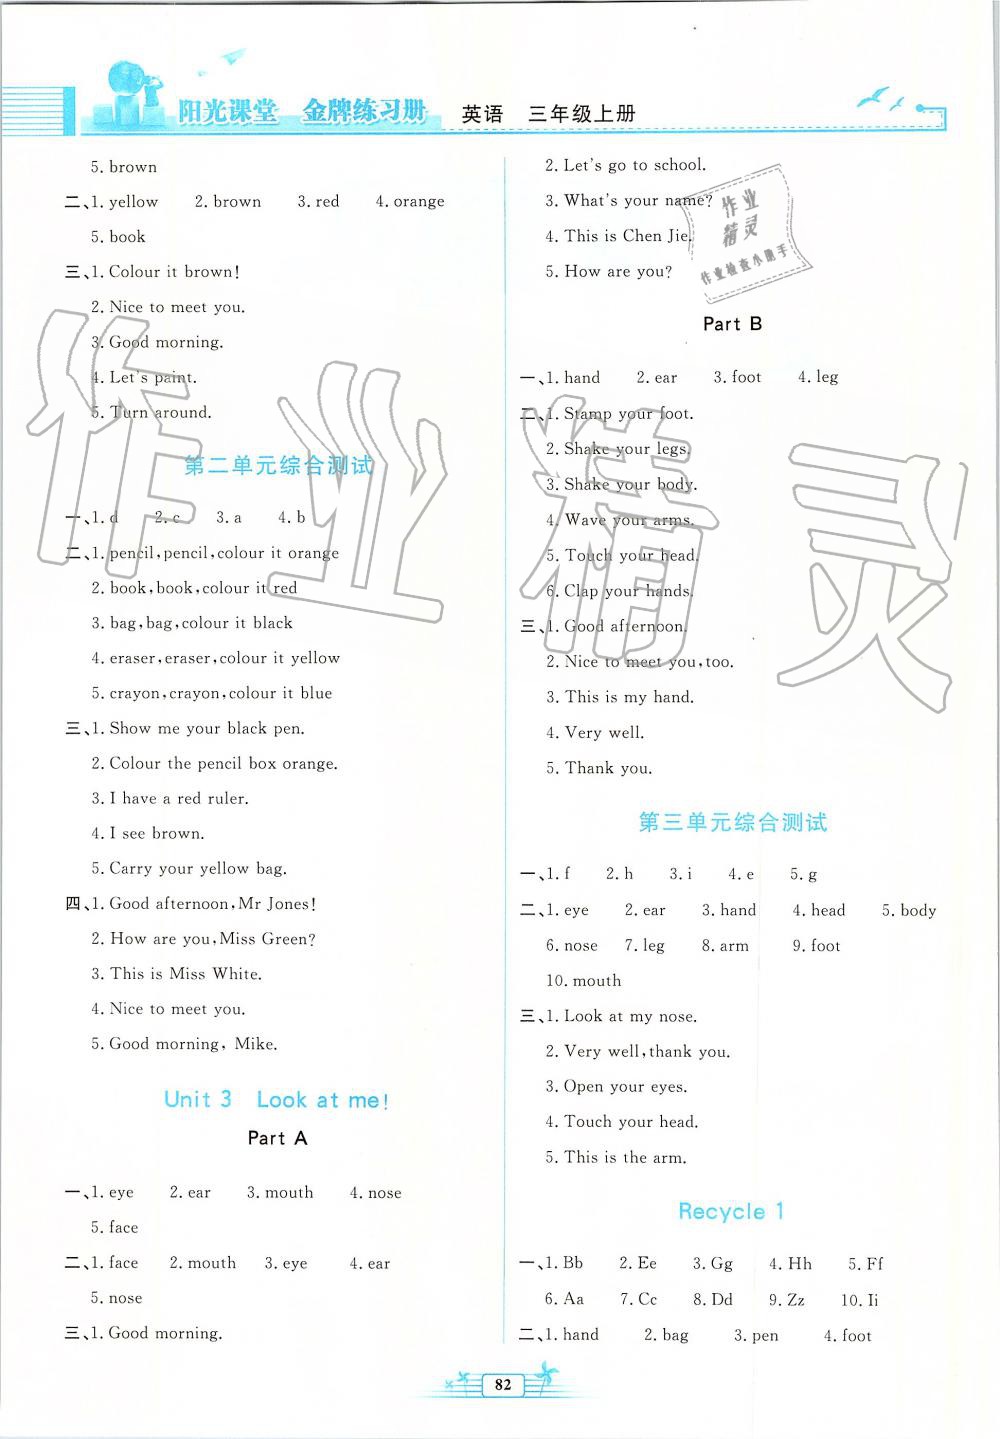 阳光课堂 金牌练习册 英语 三年级上册
5. brown
二、1. yellow 2. brown 3. red 4. orange
5. book
三、1. Colour it brown!
2. Nice to meet you.
3. Good morning.
4. Let's paint.
5. Turn around.
第二单元综合测试
一、1. d 2. c 3. a 4. b
二、1. pencil, pencil, colour it orange
2. book, book, colour it red
3. bag, bag, colour it black
4. eraser, eraser, colour it yellow
5. crayon, crayon, colour it blue
三、1. Show me your black pen.
2. Colour the pencil box orange.
3. I have a red ruler.
4. I see brown.
5. Carry your yellow bag.
四、1. Good afternoon, Mr Jones!
2. How are you, Miss Green?
3. This is Miss White.
4. Nice to meet you.
5. Good morning, Mike.
Unit 3 Look at me!
Part A
一、1. eye 2. ear 3. mouth 4. nose
5. face
二、1. face 2. mouth 3. eye 4. ear
5. nose
三、1. Good morning.
2. Let's go to school.
3. What's your name?
4. This is Chen Jie.
5. How are you?
Part B
一、1. hand 2. ear 3. foot 4. leg
二、1. Stamp your foot.
2. Shake your legs.
3. Shake your body.
4. Wave your arms.
5. Touch your head.
6. Clap your hands.
三、1. Good afternoon.
2. Nice to meet you, too.
3. This is my hand.
4. Very well.
5. Thank you.
第三单元综合测试
一、1. f 2. h 3. i 4. e 5. g
二、1. eye 2. ear 3. hand 4. head 5. body
6. nose 7. leg 8. arm 9. foot
10. mouth
三、1. Look at my nose.
2. Very well, thank you.
3. Open your eyes.
4. Touch your head.
5. This is the arm.
Recycle 1
一、1. Bb 2. Ee 3. Gg 4. Hh 5. Ff
6. Aa 7. Cc 8. Dd 9. Zz 10. Ii
二、1. hand 2. bag 3. pen 4. foot
82
作业
精灵
作业检查小助手
作业精灵